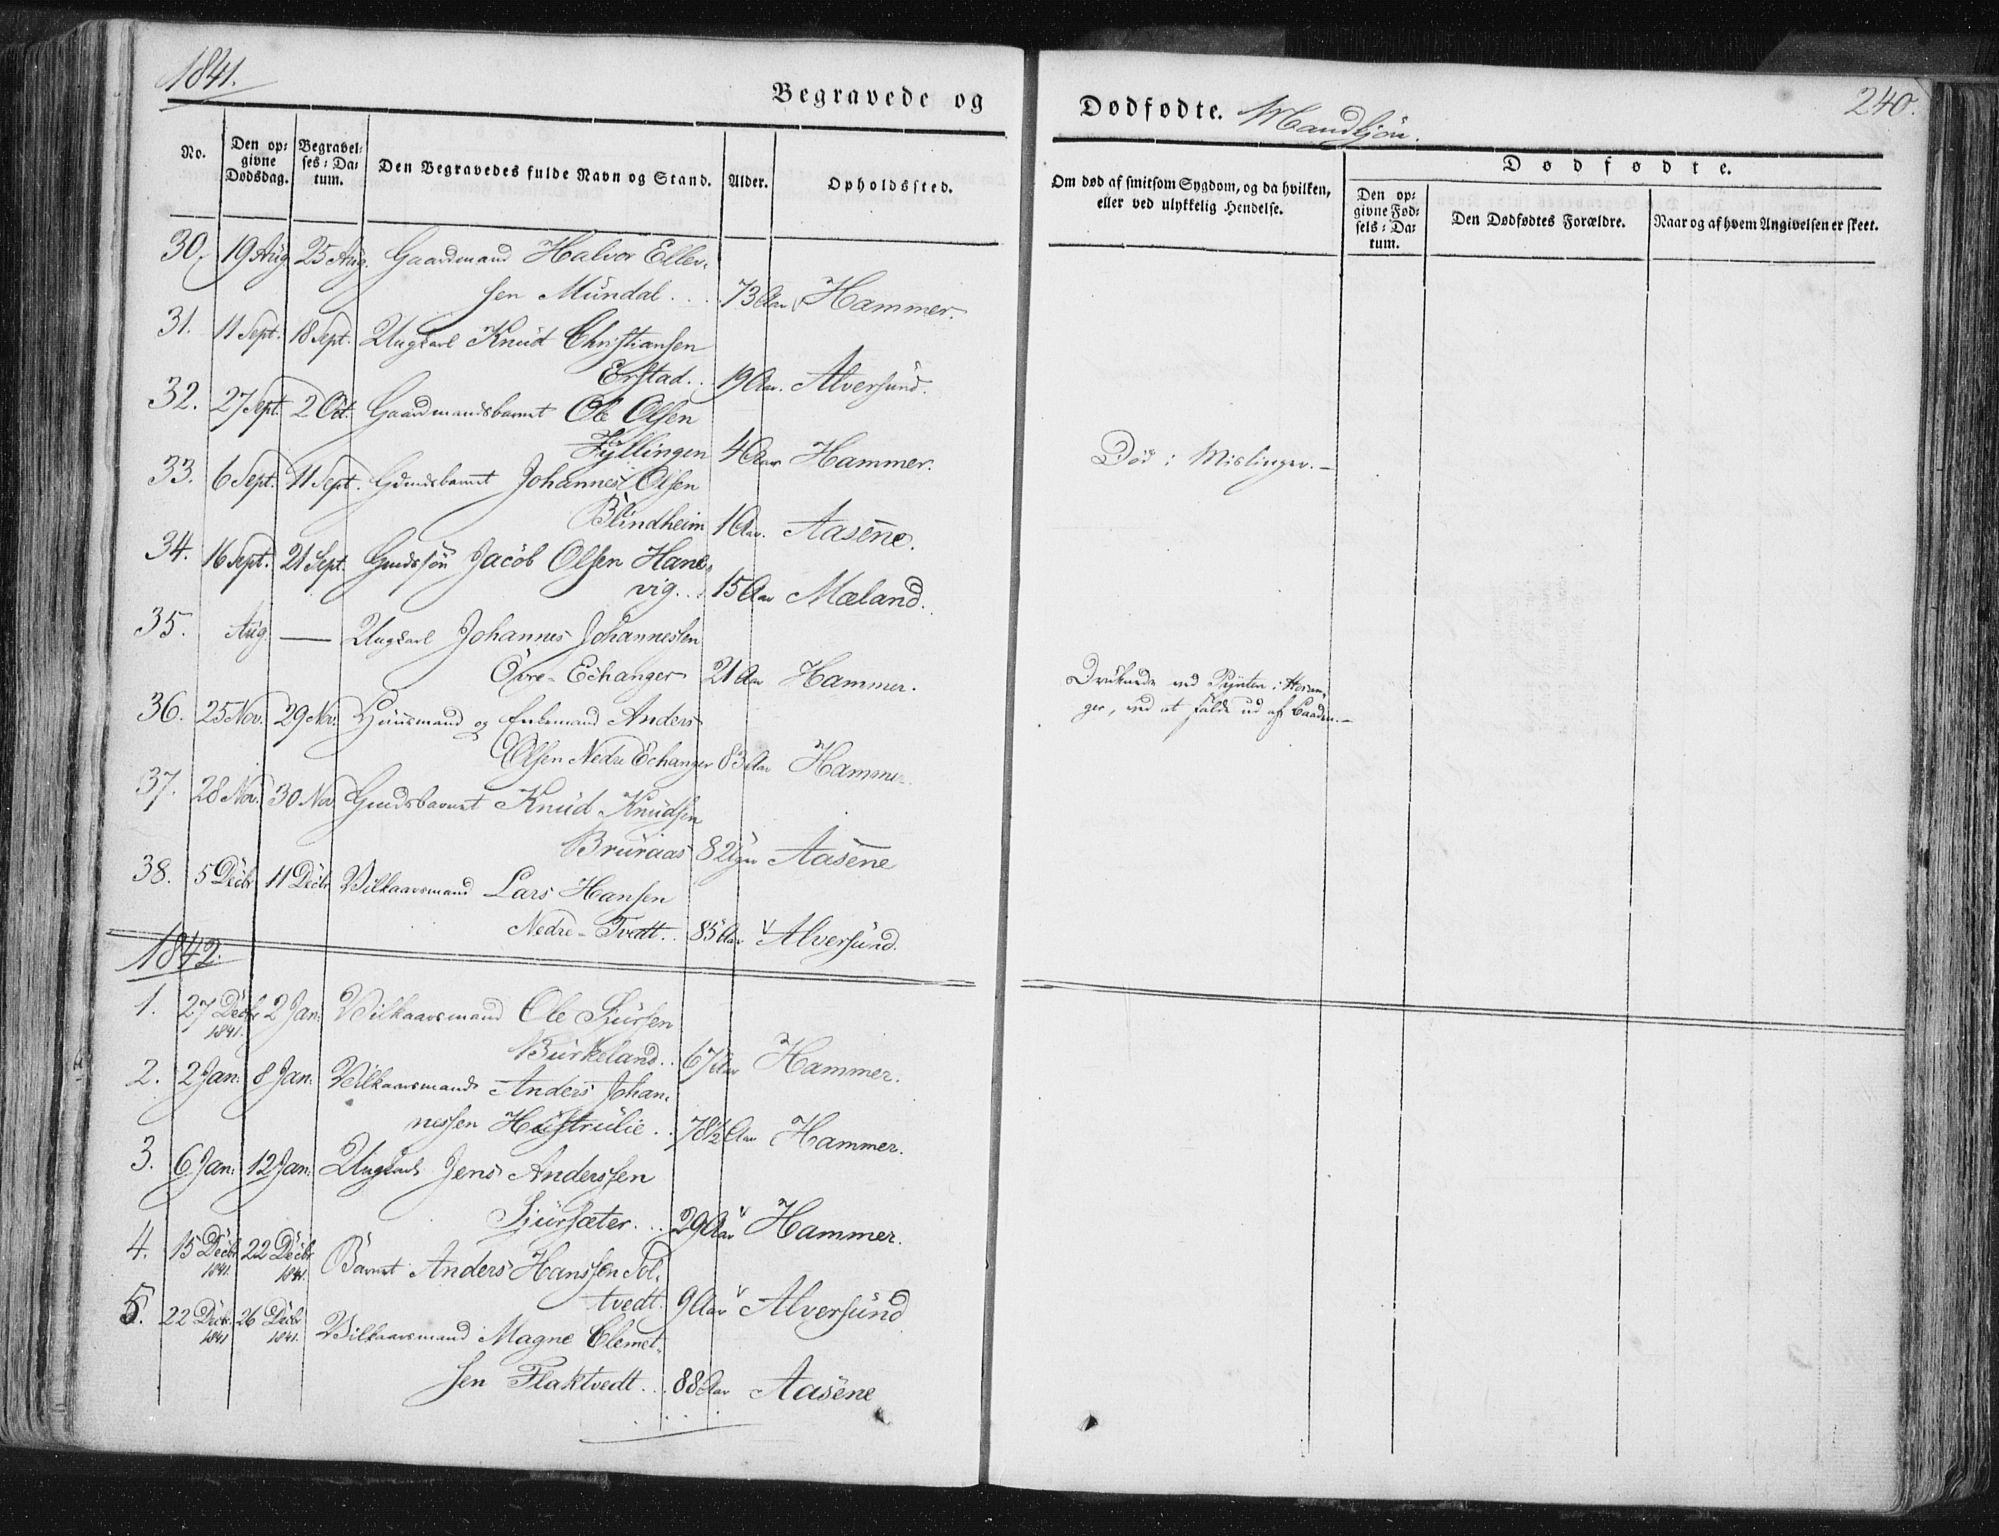 1841.
Begravede og
Dødfødte. Mandkjøn.
240.
No.
Den op-
givne
Dødsdag.
Begravel-
ses-Da-
tum.
Den Begravedes fulde Navn og Stand.
Alder.
Opholdssted.
Om død af smitsom Sygdom, og da hvilken,
eller ved ulykkelig Hendelse.
Dødfødte.
Den op-
givne Fød-
sels-Da-
tum.
Den Dødfødtes Forældre.
Naar og af hvem Angivelsen er skeet.
30. 19 Aug. 25 Aug. Gaardmand Halvor Eller-
sen Mundal . . . 73 Aar Hammer.
31. 11 Sept. 18 Sept. Ungkarl Knud Christiansen
Erstad . . 19 Aar. Alversund.
32. 27 Sept. 2 Oct. Gaardmandsbarnet Ole Olsen
Fyllingen 4 Aar Hammer. Død i Mislinger. –
33. 6 Sept. 11 Sept. Gmdsbarnet Johannes Olsen
Blindheim 1 Aar. Aasene.
34. 16 Sept. 21 Sept. Gmdssøn Jacob Olsen Hane-
vig . . . 15 Aar Mæland.
35. Aug. — Ungkarl Johannes Johannessen
Øvre-Echanger 21 Aar Hammer. Druknede ved Pynten i
ger, ved at falde ud af Baaden. –
36. 25 Nov. 29 Nov. Huusmand og Enkemand Anders
Olsen Nedre Echanger 83 Aar Hammer.
37. 28 Nov. 30 Nov. Gmdsbarnet Knud Knudsen
Bruraas 8 Uger Aasene
38. 5 Decbr 11 Decbr Vilkaarsmand Lars Hansen
Nedre-Tvedt . . 85 Aar Alversund.
1842.
1. 27 Decbr 1841. 2 Jan: Vilkaarsmand Ole Siursen
Burkeland . . 67 Aar Hammer.
2. 2 Jan: 8 Jan: Vilkaarsmand Anders Johan-
nessen Hustrulie . . 78½ Aar Hammer.
3. 6 Jan: 12 Jan: Ungkarl Jens Anderssen
Siursæter . . . 29 Aar Hammer.
4. 15 Decbr 1841. 22 Decbr 1841. Barnet Anders Hanssen Tol-
tvedt. 9 Aar Alversund
5. 22 Decbr. 1841 26 Decbr 1841. Vilkaarsmand Magne Clemet-
sen Flaktvedt . . . 88 Aar Aasene